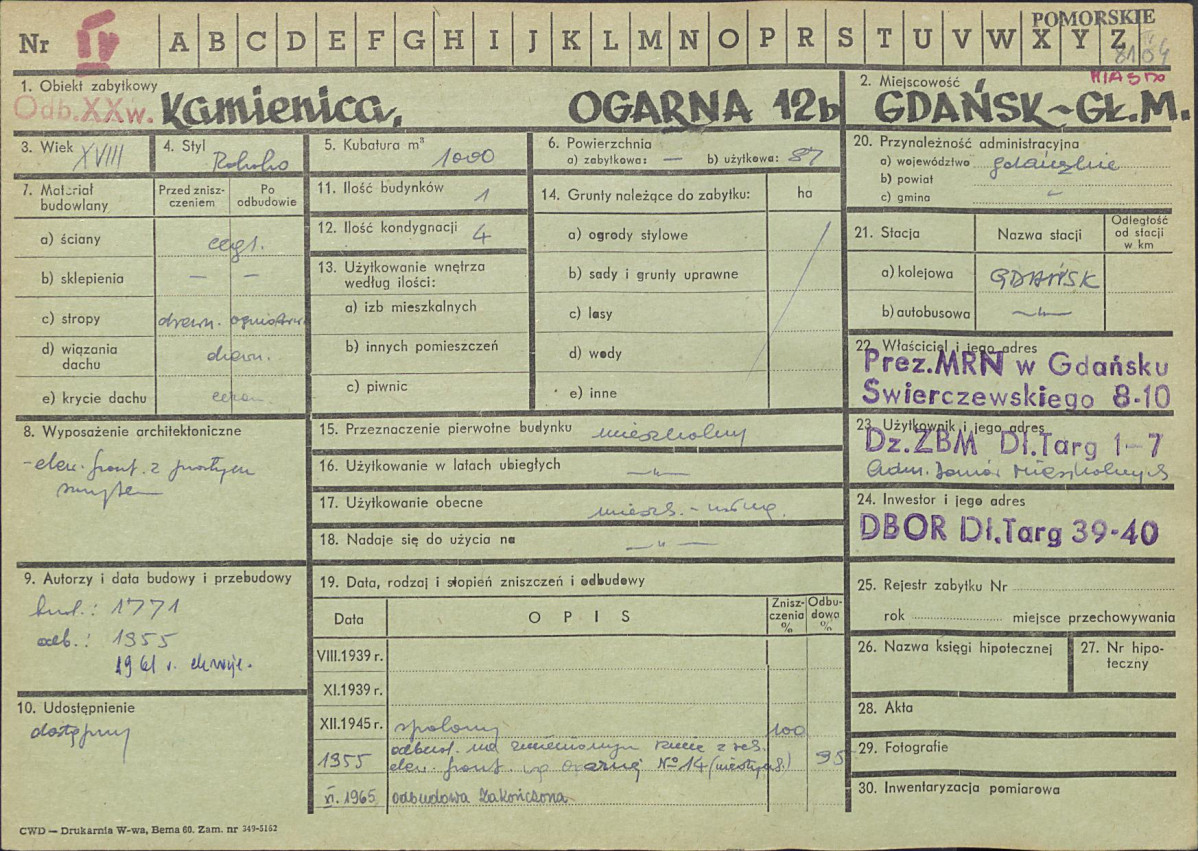 POMORSKIE
Nr IV A B C D E F G H I J K L M N O P R S T U V W X Y Z
8104
MIASTO
1. Obiekt zabytkowy
Odb. XXw. Kamienica, OGARNA 12b
2. Miejscowość
GDAŃSK-GŁ.M.
3. Wiek XVIII
4. Styl Rokoko
5. Kubatura m³ 1000
6. Powierzchnia
a) zabytkowa: — b) użytkowa: 87
7. Materiał budowlany
Przed zniszczeniem
Po odbudowie
a) ściany cegł.
b) sklepienia — —
c) stropy drewn. ogniotrw.
d) wiązania dachu drewn.
e) krycie dachu
8. Wyposażenie architektoniczne
- elew. front. z
9. Autorzy i data budowy i przebudowy
bud.: 1771
odb.: 1955
1961 r.
10. Udostępnienie
dostępny
11. Ilość budynków 1
12. Ilość kondygnacji 4
13. Użytkowanie wnętrza według ilości:
a) izb mieszkalnych
b) innych pomieszczeń
c) piwnic
14. Grunty należące do zabytku: ha
a) ogrody stylowe
b) sady i grunty uprawne
c) lasy
d) wody
e) inne
15. Przeznaczenie pierwotne budynku mieszkalny
16. Użytkowanie w latach ubiegłych —"—
17. Użytkowanie obecne mieszk. - usług.
18. Nadaje się do użycia na —"—
19. Data, rodzaj i stopień zniszczeń i odbudowy
Data
OPIS
Zniszczenia %
Odbudowa %
VIII.1939 r.
XI.1939 r.
XII.1945 r. spalony 100
1955 odbud. na zmienionym rzucie z
elew. front. wg Ogarnej № 14 95
XI. 1965 odbudowa zakończona
20. Przynależność administracyjna
a) województwo gdańskie
b) powiat
c) gmina "
21. Stacja
Nazwa stacji
Odległość od stacji w km
a) kolejowa GDAŃSK
b) autobusowa —"—
22. Właściciel i jego adres
Prez.MRN w Gdańsku
Swierczewskiego 8-10
23. Użytkownik i jego adres
Dz.ZBM Dł.Targ 1-7
Adm. Domów Mieszkalnych
24. Inwestor i jego adres
DBOR Dł.Targ 39-40
25. Rejestr zabytku Nr
rok miejsce przechowywania
26. Nazwa księgi hipotecznej
27. Nr hipoteczny
28. Akta
29. Fotografie
30. Inwentaryzacja pomiarowa
CWD — Drukarnia W-wa, Bema 60. Zam. nr 349-5162